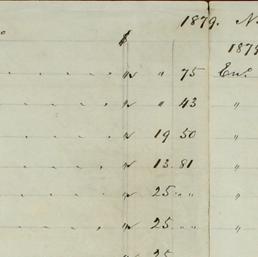 1879. N
$ 1879
" " 75 Env.
" " 43 "
" 19 50 "
" 13. 81 "
" 25 " " "
" 25 " " "
" 25